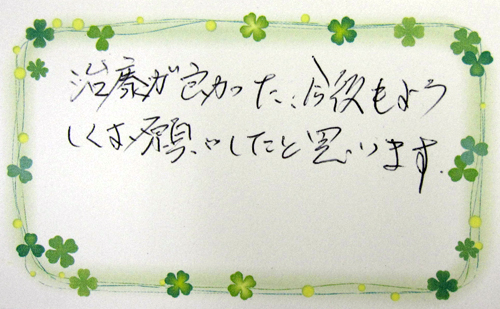 治療が良かった、今後もよろ
しくお願いしたと思います.